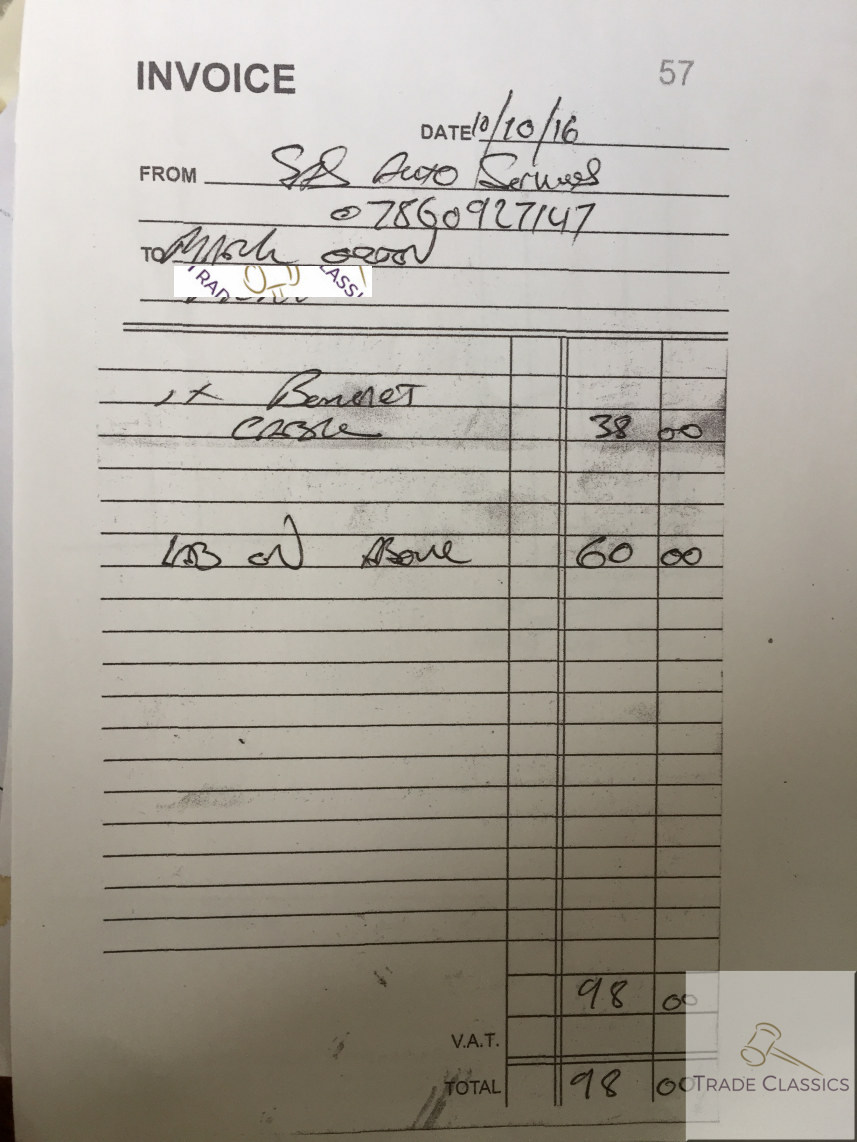 INVOICE 57
DATE 10/10/16
FROM SS Auto Services
07860927147
TO Mark
TRAD CLASSI
1 x Bonnet
Cable 38 00
LAB ON Above 60 00
98 00
V.A.T.
TOTAL 98 00
TRADE CLASSICS